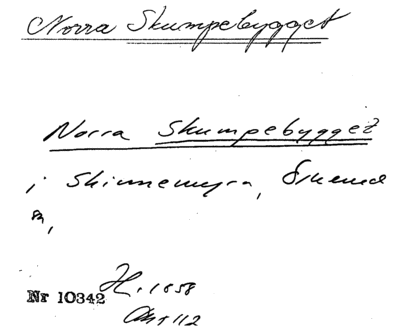 Norra Skumpebygget
Norra Skumpebygget
i Skinnemyra,
Nr 10342 H. 1858
Akt 112